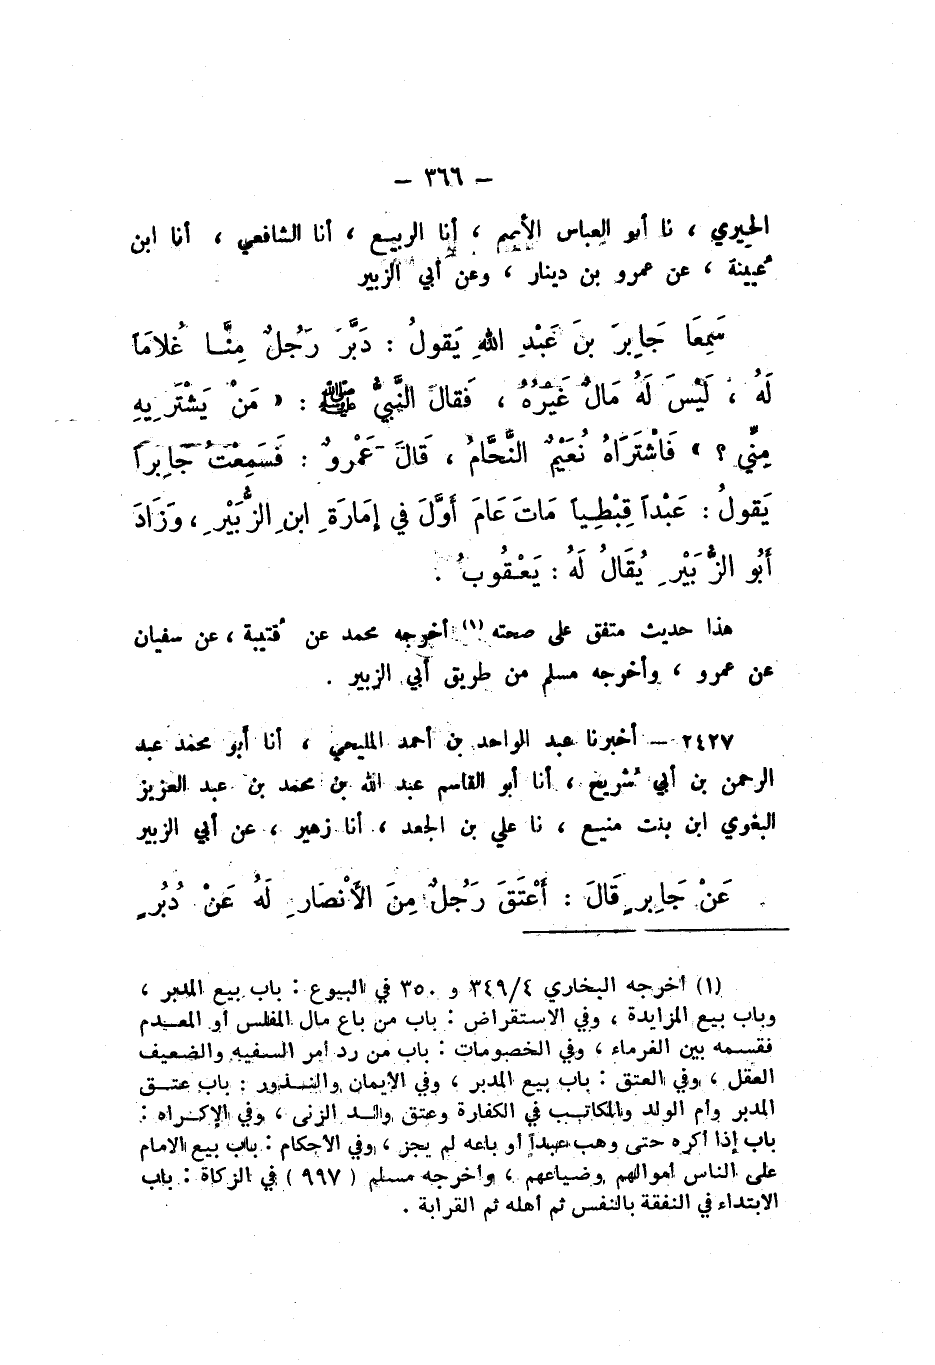 - ٣٦٦ -
الحيري ، نا أبو العباس الأصم ، أنا الربيع ، أنا الشافعي ، أنا ابن
عُيينة ، عن عمرو بن دينار ، وعن أبي الزبير
سَمِعَا جَابِرَ بنَ عَبْدِ اللهِ يَقولُ : دَبَّرَ رَجُلٌ مِنَّا غُلاَمَاً
لَهُ ، لَيْسَ لَهُ مَالٌ غَيْرُهُ ، فَقالَ النَّبيُّ ﷺ : « مَنْ يَشْتَرِيهِ
مِنِّي ؟ » فَاشْتَرَاهُ نُعَيْمُ النَّحَّامُ ، قَالَ عَمْروٌ : فَسَمِعْتُ جَابِراً
يَقولُ : عَبْداً قِبْطِياً مَاتَ عَامَ أَوَّلَ في إمَارَةِ ابنِ الزُّبَيْرِ ، وَزَادَ
أَبُو الزُّبَيْرِ يُقَالُ لَهُ : يَعْقُوبُ .
هذا حديث متفق على صحته (١) أخرجه محمد عن قُتيبة ، عن سفيان
عن عمرو ، وأخرجه مسلم من طريق أبي الزبير .
٢٤٢٧ - أخبرنا عبد الواحد بن أحمد المليحي ، أنا أبو محمد عبد
الرحمن بن أبي شُريح ، أنا أبو القاسم عبد الله بن محمد بن عبد العزيز
البغوي ابن بنت منيع ، نا علي بن الجعد ، أنا زهير ، عن أبي الزبير
عَنْ جَابِرٍ قَالَ : أَعْتَقَ رَجُلٌ مِنَ الأَنْصَارِ لَهُ عَنْ دُبُرٍ
(١) أخرجه البخاري ٣٤٩/٤ و ٣٥٠ في البيوع : باب بيع المدبر ،
وباب بيع المزايدة ، وفي الاستقراض : باب من باع مال المفلس أو المعدم
فقسمه بين الغرماء ، وفي الخصومات : باب من رد أمر السفيه والضعيف
العقل ، وفي العتق : باب بيع المدبر ، وفي الإيمان والنذور : باب عتق
المدبر وأم الولد والمكاتب في الكفارة وعتق ولد الزنى ، وفي الإكراه :
باب إذا أكره حتى وهب عبداً أو باعه لم يجز ، وفي الأحكام : باب بيع الامام
على الناس أموالهم وضياعهم ، وأخرجه مسلم ( ٩٩٧ ) في الزكاة : باب
الابتداء في النفقة بالنفس ثم أهله ثم القرابة .